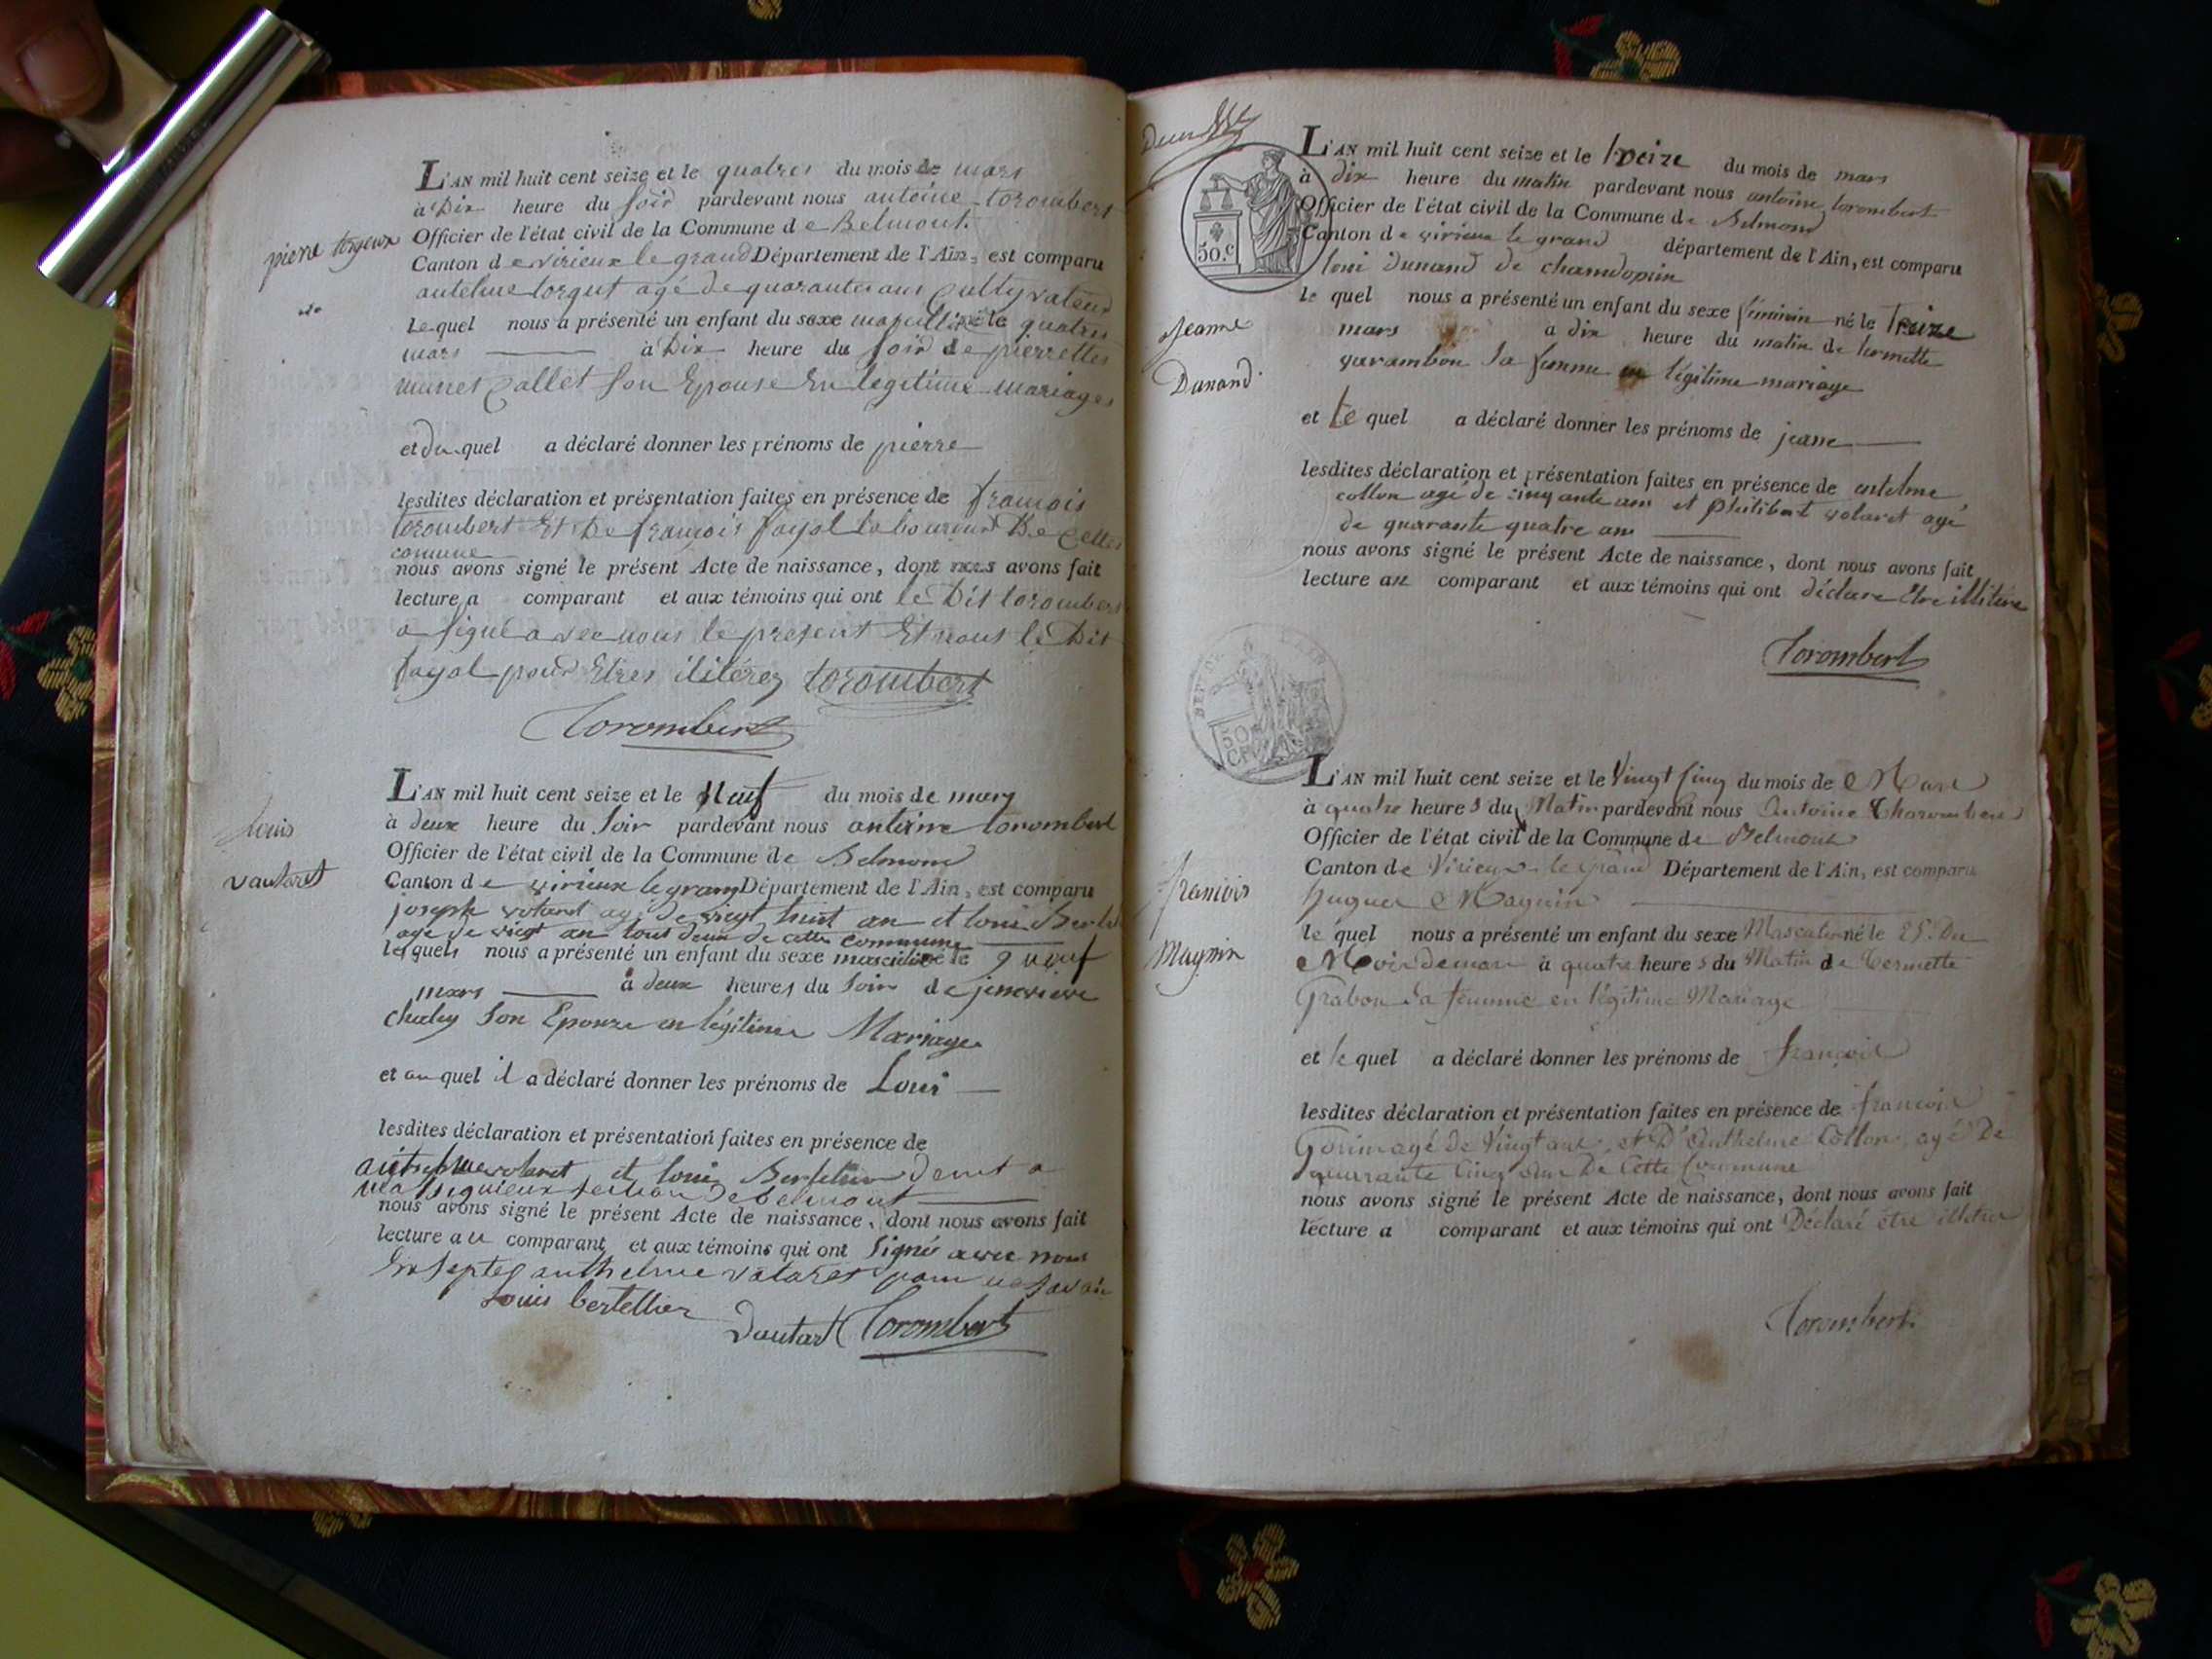 pierre
L'AN mil huit cent seize et le quatres du mois de mars
à Dix heure du soir pardevant nous antoine torombert
Officier de l'état civil de la Commune de Belmont.
Canton de virieux le grand Département de l'Ain, est comparu
agé de quarante ans cultyvateur
Le quel nous a présenté un enfant du sexe masculin né le quatres
mars à Dix heure du soir de pierrettes
collet son Epouse En legetime mariages
et du quel a déclaré donner les prénoms de pierre
lesdites déclaration et présentation faites en présence de francois
torombert Et De francois fayol laboureurs De celles
comune
nous avons signé le présent Acte de naissance, dont nous avons fait
lecture a comparant et aux témoins qui ont le Dit torombert
a signé avec nous le present Et nous le Dit
fayol pour Etres ilitérez torombert
Torombert
Louis
vautaret
L'AN mil huit cent seize et le Neuf du mois de mars
à deux heure du soir pardevant nous antoine torombert
Officier de l'état civil de la Commune de Belmond
Canton de virieux le grang Département de l'Ain, est comparu
joseph votaret agé de vingt huit an et loui
age de vingt an tous deux de cette commune
lesquels nous a présenté un enfant du sexe masculin né le 9 neuf
mars à deux heures du soir de jenevieve
chaley son Epouze en légitime Mariage
et au quel il a déclaré donner les prénoms de Loui
lesdites déclaration et présentation faites en présence de
votaret et loui
section de belmont
nous avons signé le présent Acte de naissance, dont nous avons fait
lecture au comparant et aux témoins qui ont signés avec nous
Exseptes anthelme votaret pour ne savoir
Louis bertellier
Vautaret Torombert
50.c
L'AN mil huit cent seize et le treize du mois de mars
à dix heure du matin pardevant nous antoine torombert
Officier de l'état civil de la Commune de Belmond
Canton de virieux le grand département de l'Ain, est comparu
loui dunand de
le quel nous a présenté un enfant du sexe féminin né le Treize
mars à dix heure du matin de termette
garambon sa femme en légitime mariage
Jeanne
Dunand
et le quel a déclaré donner les prénoms de jeane
lesdites déclaration et présentation faites en présence de entelme
collon agé de cinquante ans et philibert votaret agé
de quarante quatre ans
nous avons signé le présent Acte de naissance, dont nous avons fait
lecture au comparant et aux témoins qui ont déclare être illitere
Torombert
50
L'AN mil huit cent seize et le Vingt cinq du mois de Mars
à quatre heures du Matin pardevant nous Antoine Thorombert
Officier de l'état civil de la Commune de Belmont
Canton de Virieux le Grand Département de l'Ain, est comparu
hugues Magnin
francois
Magnin
le quel nous a présenté un enfant du sexe Masculin né le 25 Du
Mois de mars à quatre heures du Matin de Termette
Grabou sa femme en légitime Mariage
et le quel a déclaré donner les prénoms de françois
lesdites déclaration et présentation faites en présence de francois
agé de Vingt ans et D'Anthelme Collon agé De
quarante Cinq ans De Cette Commune
nous avons signé le présent Acte de naissance, dont nous avons fait
lecture a comparant et aux témoins qui ont Déclaré être
Torombert